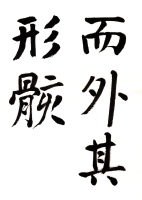 而外其
形骸